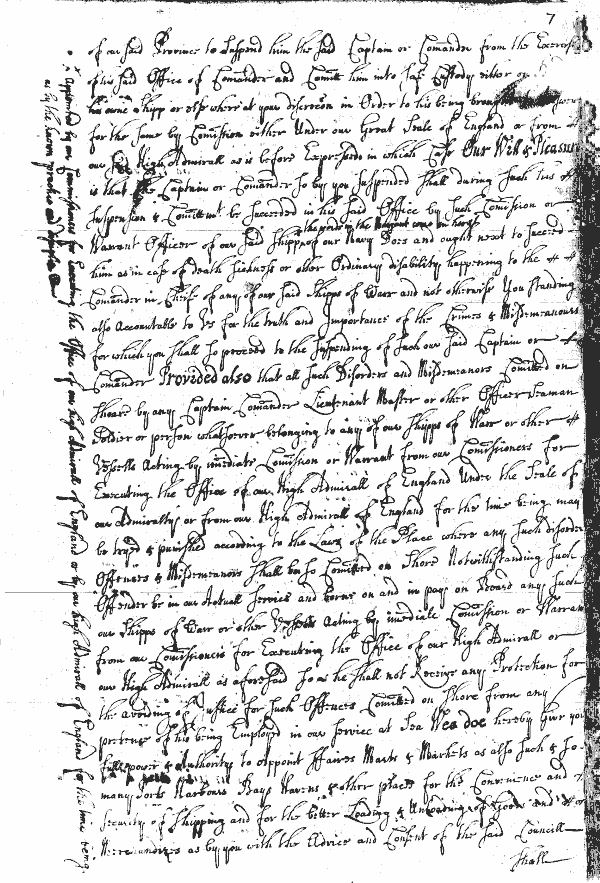 7
of our said Province to suspend him the said Captain or Comander from the Exercise
of his said Office of Comander and Comitt him into safe Custody either on
his owne shipp or elsewhere at your discrecon in Order to his being brought answere
for the same by Comission either Under our Great Seale of England or from
our said High Admirall as is before Expressed in which Case Our Will & Pleasure
is that the Captain or Comander so by you suspended shall during such his
Suspension & Comittmt. be succeeded in his said Office by such Comission or
Warrant Officer of our said Shipp of our Navy does and ought next to succeed
him as in case of death sickness or other Ordinary disability happening to the
Comander in Cheife of any of our said Shipps of Warr and not otherwise You standing
also Accountable to Us for the truth and Importance of the Crimes & Misdemeanours
for which you shall so proceed to the suspending of such our said Captain or
Comander Provided also that all such Disorders and Misdemeanors Comitted on
Shoare by any Captain Comander Lieutenant Master or other Officer Seaman
Soldier or person whatsoever belonging to any of our Shipps of Warr or other
Vessells Acting by imediate Comission or Warrant from our Comissioners for
Executing the Office of our High Admirall of England Under the Seale of
our Admiralty or from our High Admirall of England for the time being may
be tryed & punished according to the Laws of the Place where any such disorders
Offences & Misdemeanors shall be so Comitted on Shore Notwithstanding such
Offender be in our Actuall Service and borne on and in pay on Board any such
our Shipps of Warr or other Vessells Acting by imediate Comission or Warrant
from our Comissioners for Executing the Office of our High Admirall or
our High Admirall as aforesaid so as he shall not Receive any Protection for
the avoiding of Justice for such Offences Comitted on Shore from any
pretence of his being Employed in our Service at Sea Wee doe hereby Give you
full power & Authority to appoint ffaires Marts & Markets as also such & so
many Ports Harbours Bays Havens & other places for the Convenience and
security of Shipping and for the better Loading & Unloading of Goods and
Merchandizes as by you with the Advice and Consent of the said Councill
shall
x Appointed by our Commissioners for Executing the Office of our high Admirall of England or by our high Admirall of England for the time being
as by the known practice and